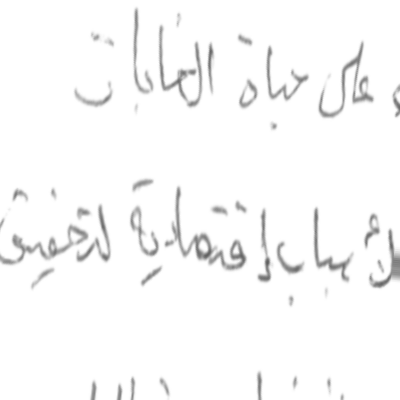 على حياة الغابات
لأسباب إقتصادية لتخفيض